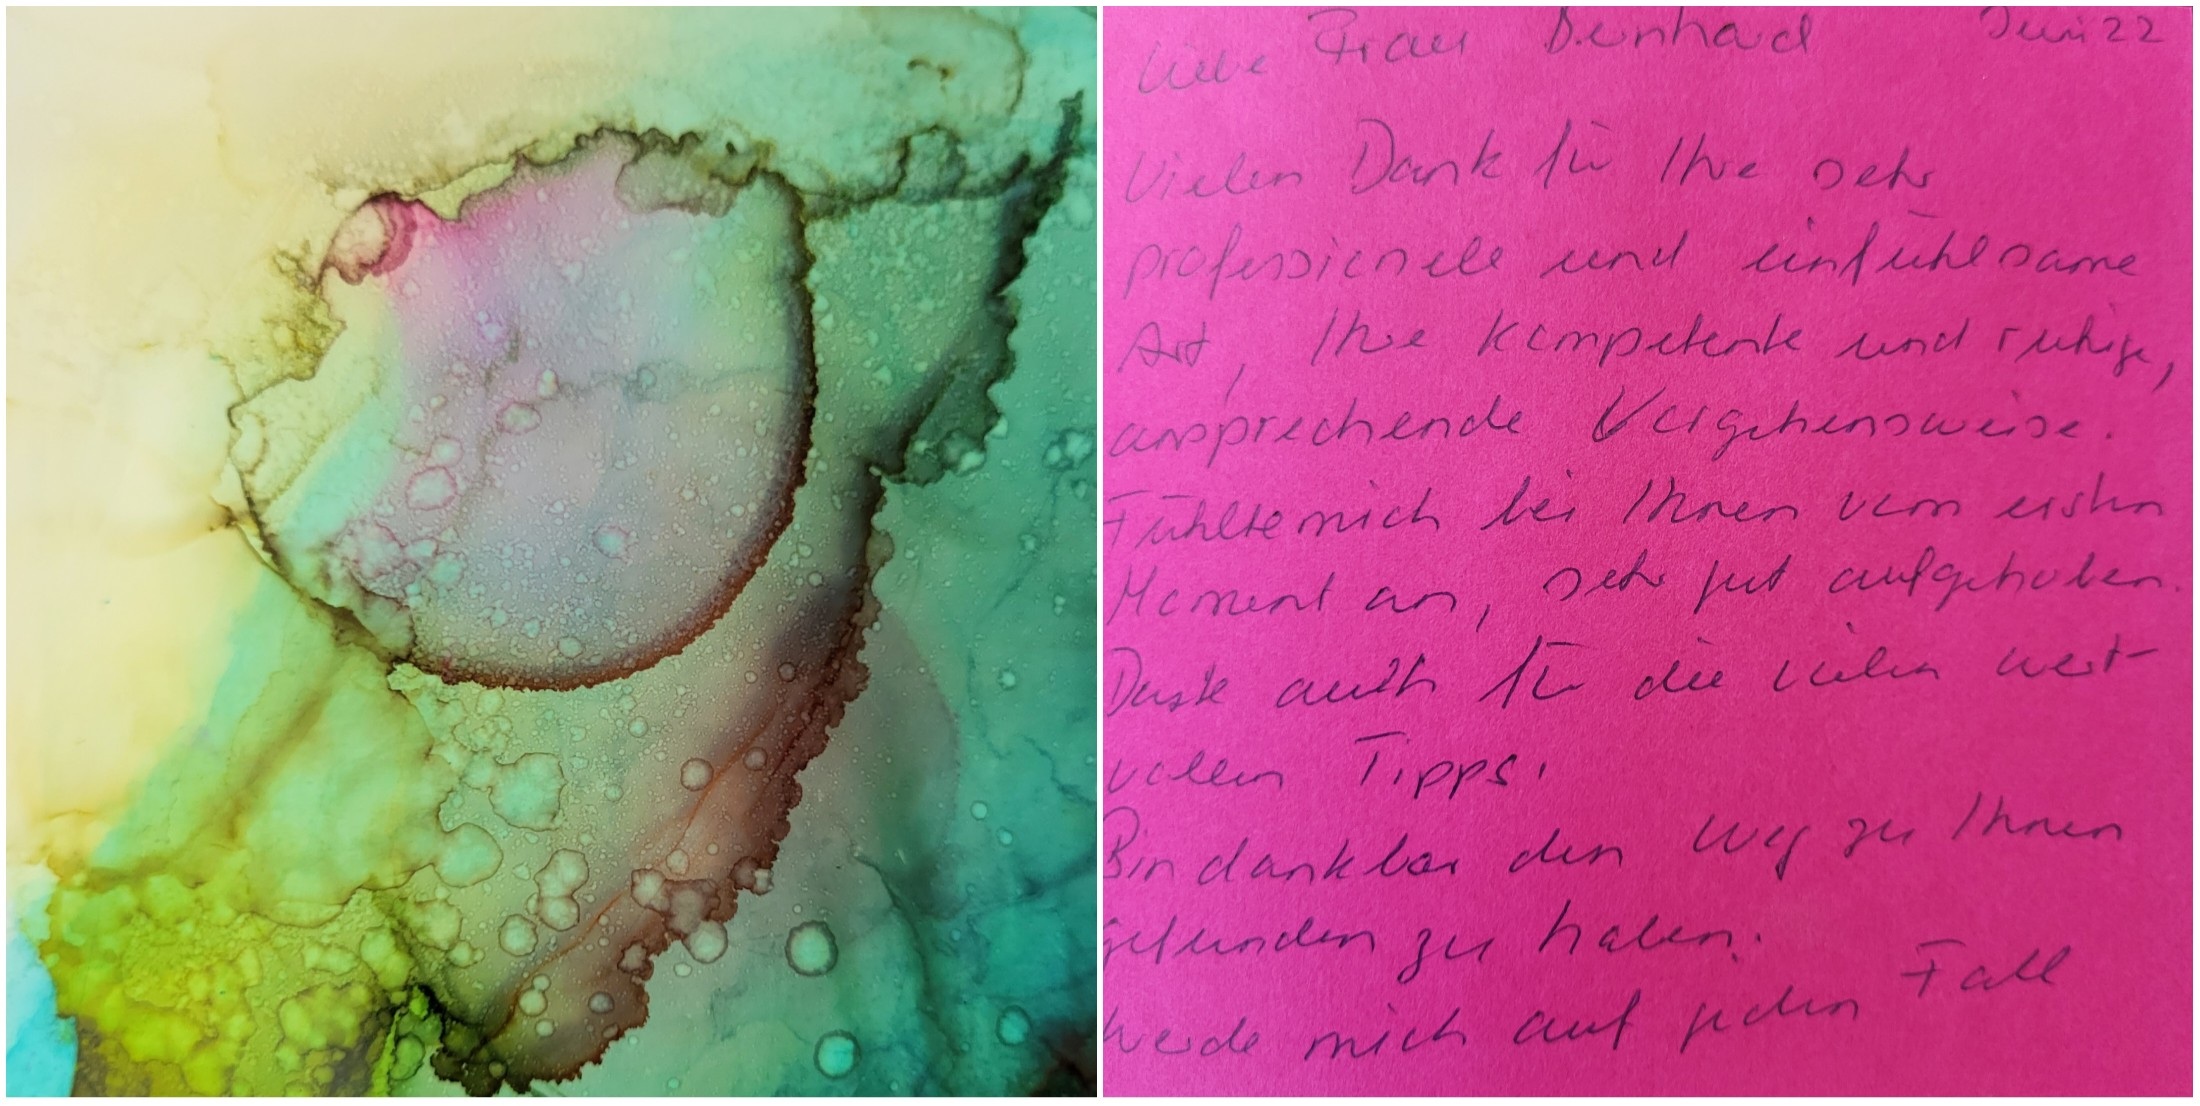 Liebe Frau Bernhard Juni 22
Vielen Dank für Ihre sehr
professionelle und einfühlsame
Art, Ihre kompetente und ruhige,
ansprechende Vorgehensweise.
Fühlte mich bei Ihnen vom ersten
Moment an, sehr gut aufgehoben.
Danke auch für die vielen wert-
vollen Tipps.
Bin dankbar den Weg zu Ihnen
gefunden zu haben.
Werde mich auf jeden Fall